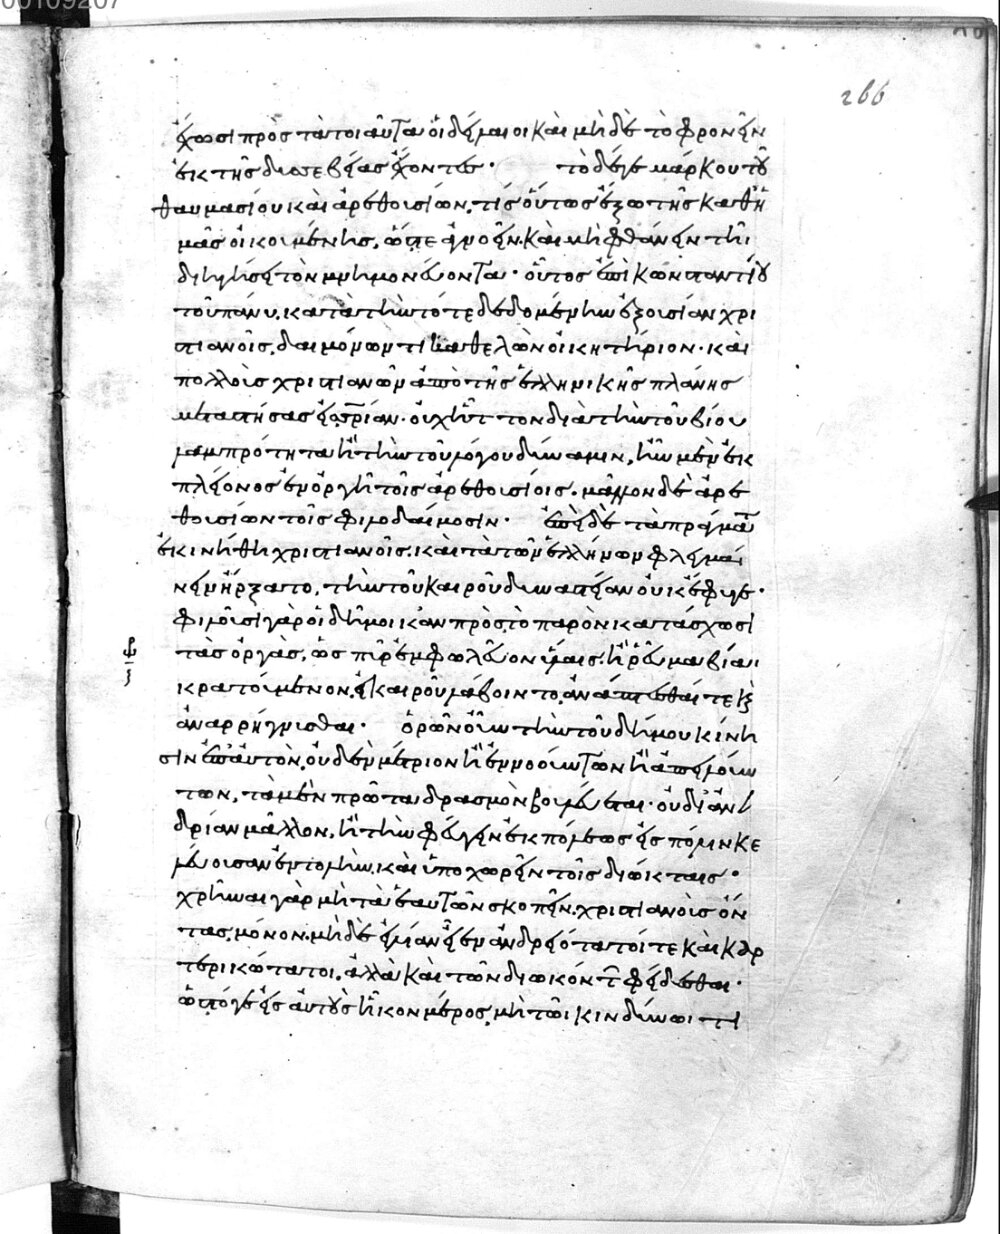 00109207
266
ἔχωσι πρὸς τὰ τοιαῦτα οἱ δῆμοι καὶ μηδὲ τὸ φρονεῖν
ἐκ τῆς εὐσεβείας ἔχοντες· τὸ δέ γε μάρκου τοῦ
θαυμασίου καὶ ἀρεθουσίων, τίς οὕτως ἔξω τῆς καθ' ἡ
μᾶς οἰκουμένης, ὥστε ἀγνοεῖν καὶ μὴ φθάνειν τῆι
διηγήσει τὸν μνημονεύοντα· οὗτος ἐπὶ κωνσταντίου
τοῦ πάνυ, κατὰ τὴν τότε δεδομένην ἐξουσίαν χρι
στιανοῖς, δαιμόνων τι καθελὼν οἰκητήριον· καὶ
πολλοὺς χριστιανῶν ἀπὸ τῆς ἑλληνικῆς πλάνης
μεταστήσας εἰς σρίαν· οὐχ ἧττον διὰ τὴν τοῦ βίου
λαμπρότητα ἢ τὴν τοῦ λόγου δύναμιν, ἦν μὲν ἐκ
πλείονος ἐν ὀργῆ τοῖς ἀρεθουσίοις· μᾶλλον δὲ ἀρε
θουσίων τοῖς φιλοδαίμοσιν· ἐπεὶ δὲ τὰ πράγματα
ἐκινήθη χριστιανοῖς, καὶ τὰ τῶν ἑλλήνων φλεγμαί
νειν ἤρξατο, τὴν τοῦ καιροῦ δυναστείαν οὐκ ἔφυγε·
φιλοῦσι γὰρ οἱ δῆμοι κἂν πρὸς τὸ παρὸν κατάσχωσι
τὰς ὀργάς, ὡς πῦρ ἐμφωλεῦον ὕλαις ἢ ῥεῦμα βίαι
κρατούμενον, εἰ καιροῦ λάβοιντο, ἀνάπτεσθαί τε καὶ
ἀναρρήγνυσθαι· ὁρῶν οὖν τὴν τοῦ δήμου κίνη
σιν ἐπ' αὐτὸν, οὐδὲν μέτριον ἢ ἐννοούντων ἢ ἀπειλούν
των, τὰ μὲν πρῶτα δρασμὸν βουλεύεται· οὐ δι' ἀναν
δρίαν μᾶλλον, ἢ τὴν φεύγειν ἐκ πόλεως εἰς πόλιν κε
λεύουσαν ἐντολὴν, καὶ ὑποχωρεῖν τοῖς διώκταις·
χρῆναι γὰρ μὴ τὰ ἑαυτῶν σκοπεῖν χριστιανοὺς ὄν
τας, μόνον, μηδὲ εἰ λίαν εἶεν ἀνδρειότατοί τε καὶ καρ
τερικώτατοι, ἀλλὰ καὶ τῶν διωκόντων φείδεσθαι·
ὥστό γε εἰς αὐτοὺς ἧκον μέρος, μὴ τῶι κινδύνωι τι